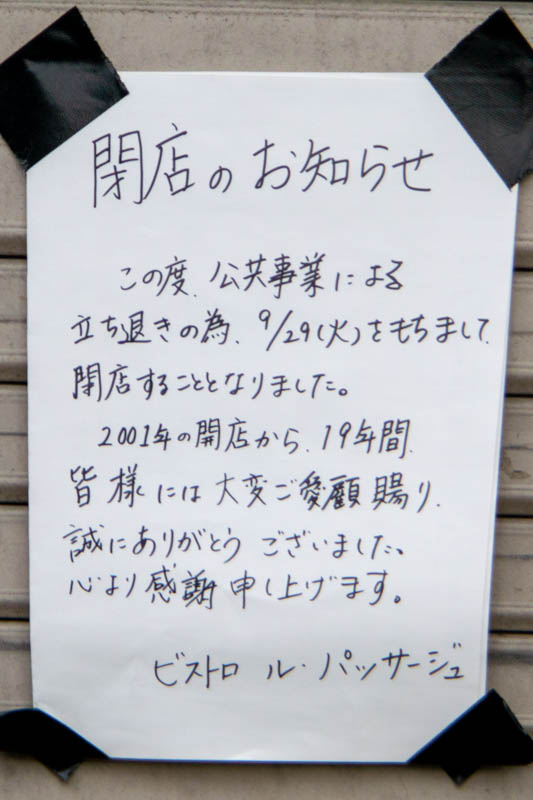 閉店のお知らせ
この度、公共事業による
立ち退きの為、9/29(火)をもちまして、
閉店することとなりました。
2001年の開店から、19年間、
皆様には大変ご愛顧賜り、
誠にありがとうございました。
心より感謝申し上げます。
ビストロ ル・パッサージュ